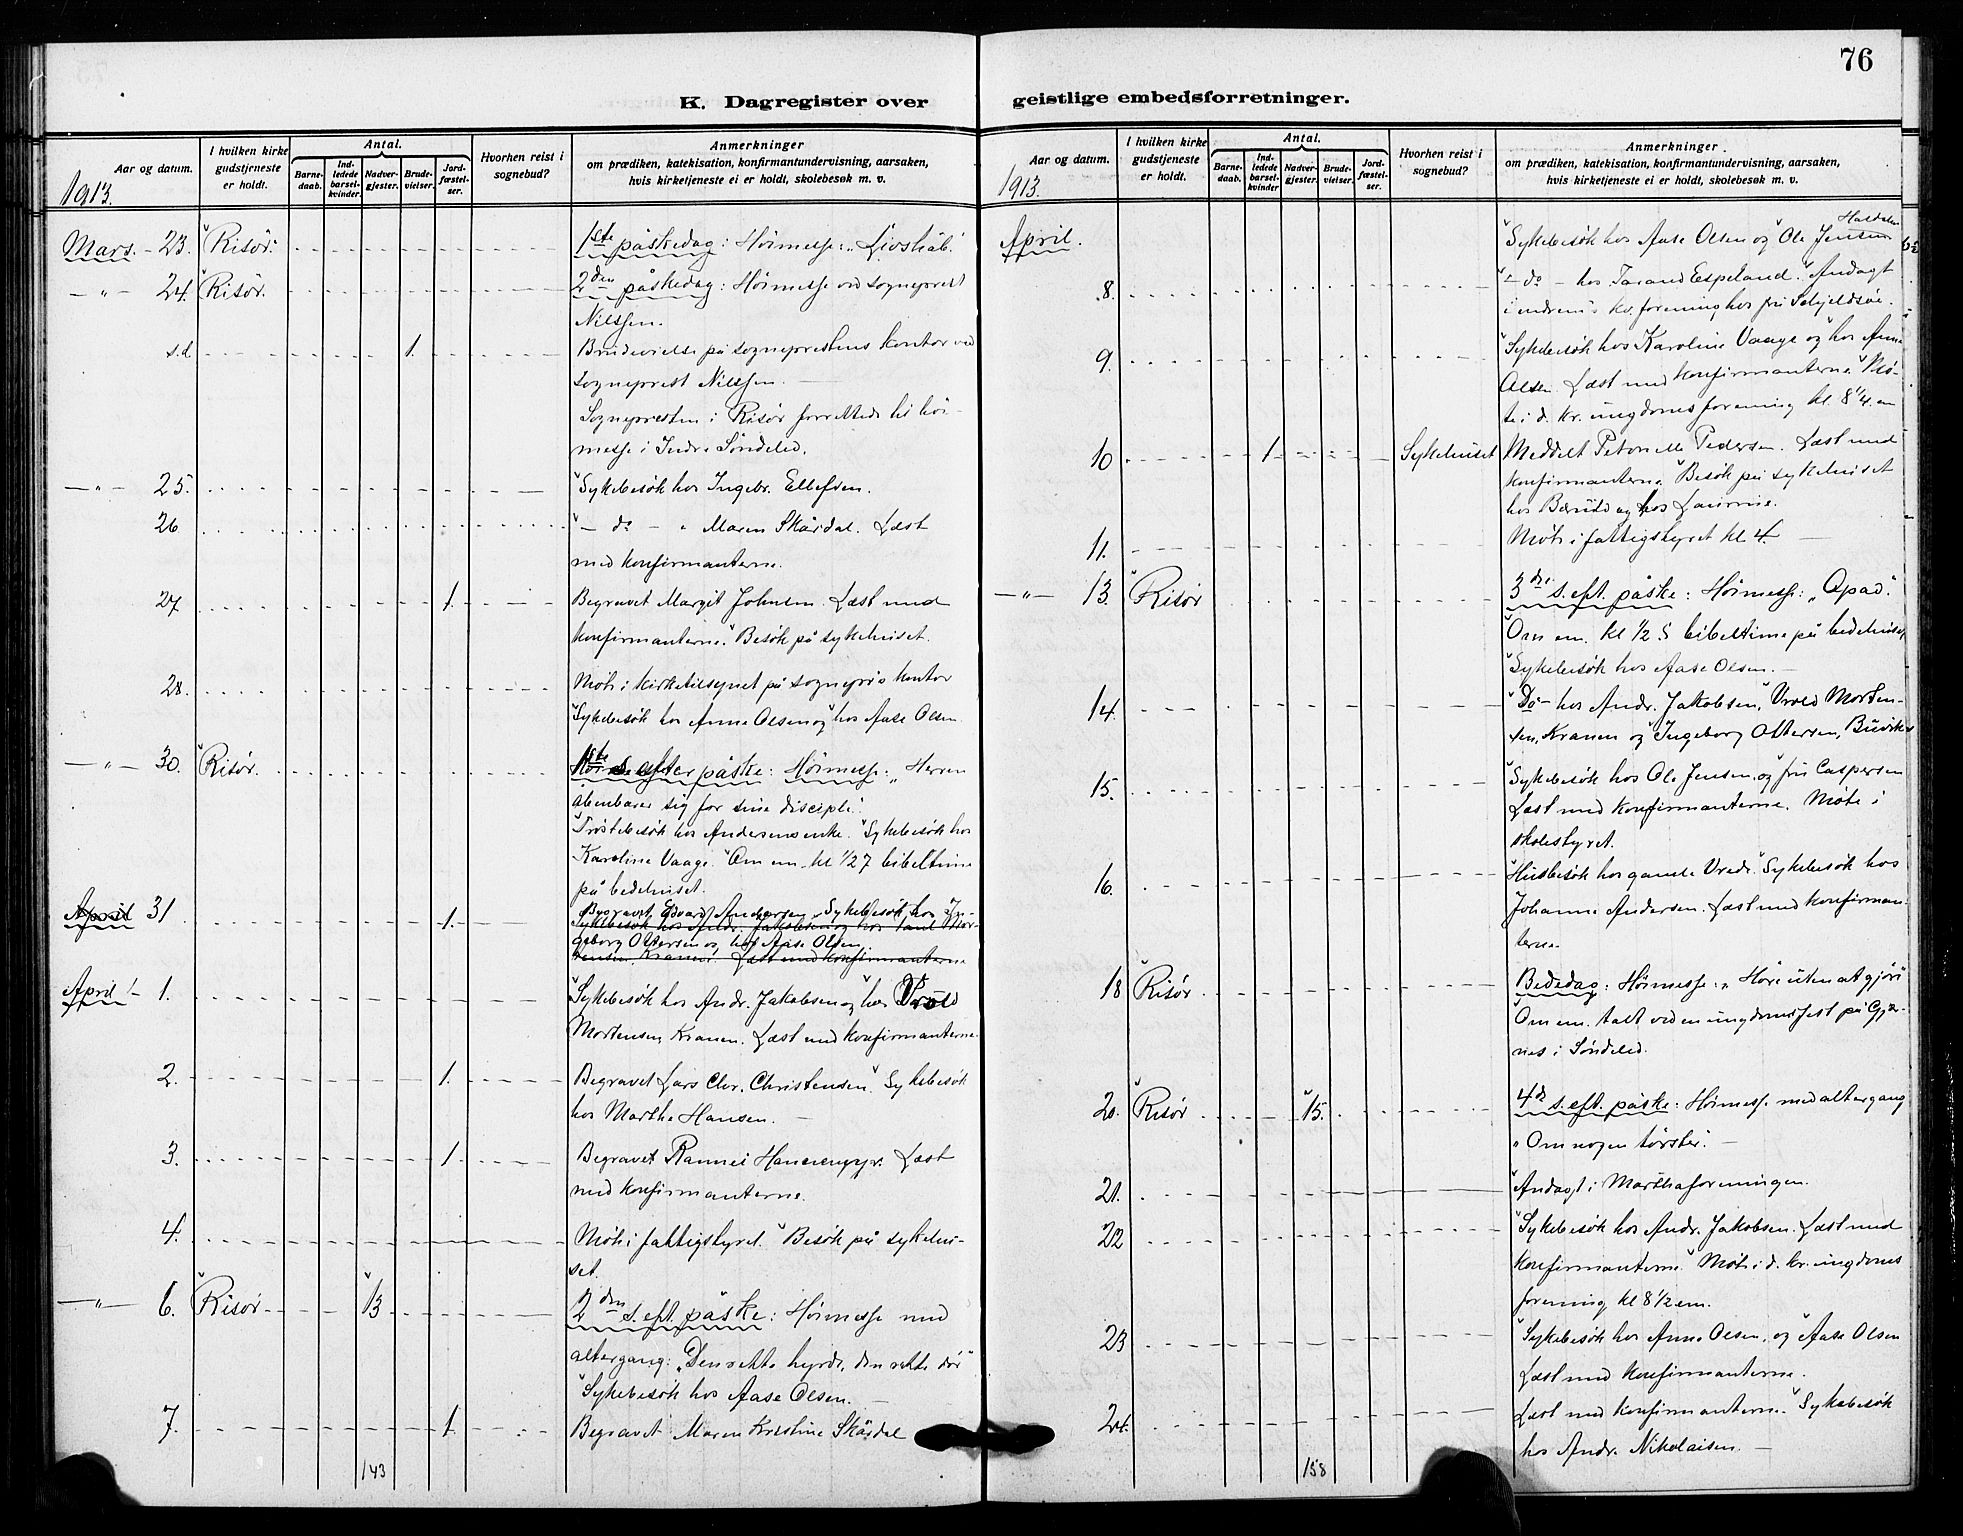 76
K. Dagregister over
geistlige embedsforretninger.
Aar og datum.
I hvilken kirke gudstjeneste er holdt.
Antal.
Barnedaab.
Indledede barselkvinder.
Nadvergjester.
Brudevielser.
Jordfæstelser.
Hvorhen reist i sognebud?
Anmerkninger
om prædiken, katekisation, konfirmantundervisning, aarsaken,
hvis kirketjeneste ei er holdt, skolebesøk m. v.
1913.
Mars. - 23. Risør. 1ste påskedag: Höimesse: „Livshåb.“
- „ - 24. Risör. 2den påskedag: Höimesse ved sogneprest
Nilssen.
s.d. 1. Brudevielse på sogneprestens kontor ved
sogneprest Nilssen.
Sognepresten i Risör forrettede til höi-
messe i Indre Söndeled.
- „ - 25. Sykebesök hos Ingebr. Ellefsen.
26 - do - „ Maren Skårdal. Læst
med konfirmanterne.
27 1. Begravet Margit Johnsen. Læst med
konfirmanterne. Besök på sykehuset.
28. Möte i kirketilsynet på sognepr's kontor
Sykebesök hos Anne Olsen og hos Aase Olsen.
- „ - 30. Risör. 1ste s. efter påske: Höimesse: „Herren
åbenbarer sig for sine disciple.“
Tröstebesök hos Andersens enke. Sykebesök hos
Karoline Vaage. Om em. kl 1/2 7 bibeltime
på bedehuset.
April 31 1. Begravet Edvard Andersen. Sykebesök hos In-
Sykebesök hos Andr. Jakobsen og hos
geborg Ottersen og hos Aase Olsen.
Kranen. Læst med konfirmanterne
April - 1. Sykebesök hos Andr. Jakobsen og hos Vrold
Mortensen, Kranen. Læst med konfirmanterne.
2. 1. Begravet Lars Chr. Christensen. Sykebesök
hos Marthe Hansen.
3. 1. Begravet Læst
med konfirmanterne.
4. Möte i fattigstyret. Besök på sykehu-
set.
- „ - 6. Risör 13 2den s. eft. påske: Höimesse med
altergang: „Den rette hyrde, den rette dör“
Sykebesök hos Aase Olsen.
7. 1. Begravet Maren Kristine Skårdal
143
Aar og datum.
I hvilken kirke gudstjeneste er holdt.
Antal.
Barnedaab.
Indledede barselkvinder
Nadvergjester.
Brudevielser.
Jordfæstelser.
Hvorhen reist i sognebud?
Anmerkninger.
om prædiken, katekisation, konfirmantundervisning, aarsaken,
hvis kirketjeneste ei er holdt, skolebesøk m. v.
1913.
April. Sykebesök hos Aase Olsen og Ole Jensen
8. - do - hos Taran Espeland. Andagt
i indrem's kv. forening hos fru Schjeldsöe.
9. Sykebesök hos Karoline Vaage og hos Anne
Olsen. Læst med konfirmanterne. Mö-
te i d. kr. ungdomsforening kl. 8 1/4 em
10 1 Sykehuset Meddelt Petonelle Pedersen. Læst med
konfirmanterne. Besök på sykehuset
hos og hos
11. Möte i fattigstyret kl. 4.
- „ - 13. Risör 3die s. eft. påske: Höimesse: „Opad.“
Om em. kl 1/2 5 bibeltime på bedehuset
Sykebesök hos Aase Olsen.
14. Do - hos Andr. Jakobsen, Vrold Morten-
sen, Kranen og Ingeborg Ottersen, Buviken
15. Sykebesök hos Ole Jensen, og fru Caspersen
Læst med konfirmanterne. Möte i
skolestyret.
16. Husbesök hos gamle Sykebesök hos
Johanne Andersen. Læst med konfirman-
terne.
18 Risör. Bededag: Höimesse: „Höre uten at gjöre“
Om em. talt ved en ungdomsfest på Gjer-
nes i Söndeled.
20. Risör 15. 4de s. eft. påske: Höimesse med altergang
„Om nogen törster.“
21. Andagt i Marthaforeningen.
22 Sykebesök hos Andr. Jakobsen. Læst med
konfirmanterne. Möte i d. kr. ungdoms
forening kl 8 1/2 em.
23 Sykebesök hos Anne Olsen, og Aase Olsen
Læst med konfirmanterne.
24. Læst med konfirmanterne. Sykebesök
hos Andr. Nikolaisen.
158